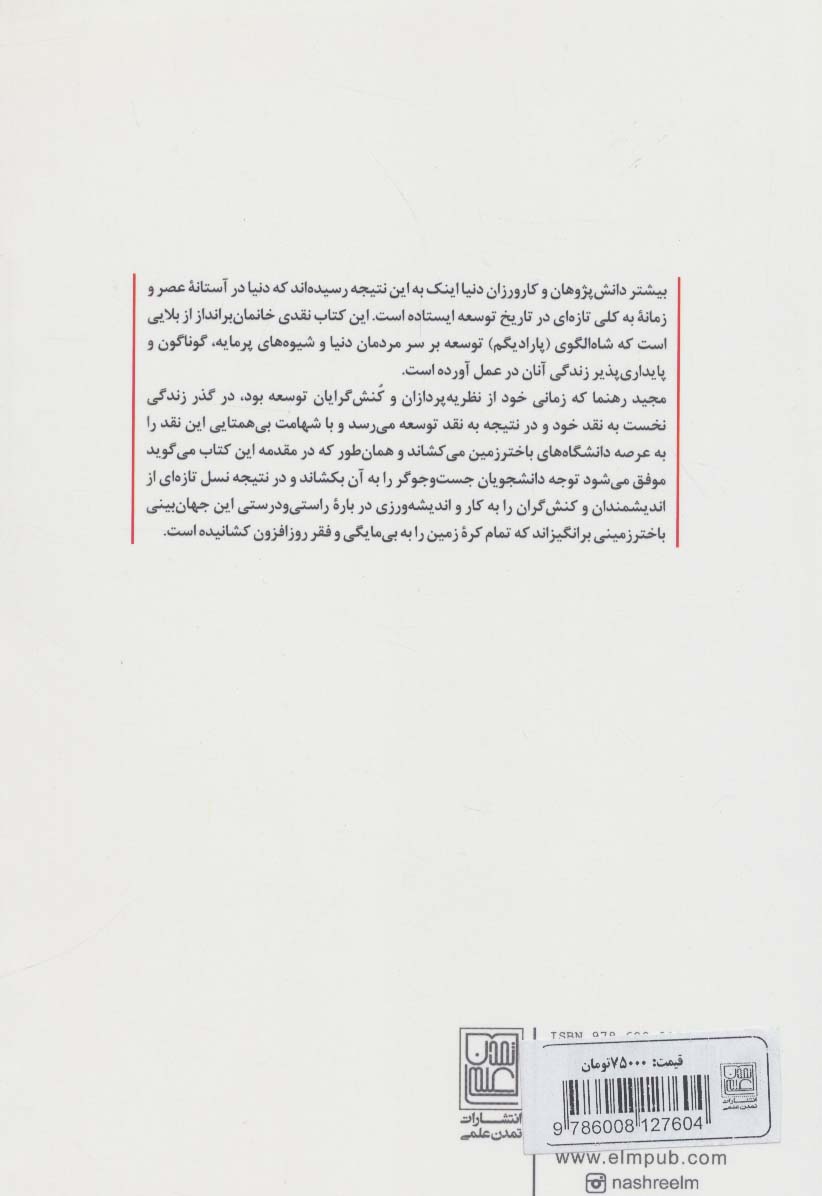 بیشتر دانش‌پژوهان و کارورزان دنیا اینک به این نتیجه رسیده‌اند که دنیا در آستانهٔ عصر و
زمانهٔ به کلی تازه‌ای در تاریخ توسعه ایستاده است. این کتاب نقدی خانمان‌برانداز از بلایی
است که شاه‌الگوی (پارادیگم) توسعه بر سر مردمان دنیا و شیوه‌های پرمایه، گوناگون و
پایداری‌پذیر زندگی آنان در عمل آورده است.
مجید رهنما که زمانی خود از نظریه‌پردازان و کُنش‌گرایان توسعه بود، در گذر زندگی
نخست به نقد خود و در نتیجه به نقد توسعه می‌رسد و با شهامت بی‌همتایی این نقد را
به عرصه دانشگاه‌های باخترزمین می‌کشاند و همان‌طور که در مقدمه این کتاب می‌گوید
موفق می‌شود توجه دانشجویان جست‌وجوگر را به آن بکشاند و در نتیجه نسل تازه‌ای از
اندیشمندان و کنش‌گران را به کار و اندیشه‌ورزی در بارهٔ راستی‌ودرستی این جهان‌بینی
باخترزمینی برانگیزاند که تمام کرهٔ زمین را به بی‌مایگی و فقر روزافزون کشانیده است.
ISBN 978
قیمت: ۷۵۰۰۰تومان
انتشارات
تمدن علمی
9 786008 127604
تمدن علمی
انتشارات
تمدن علمی
www.elmpub.com
nashreelm